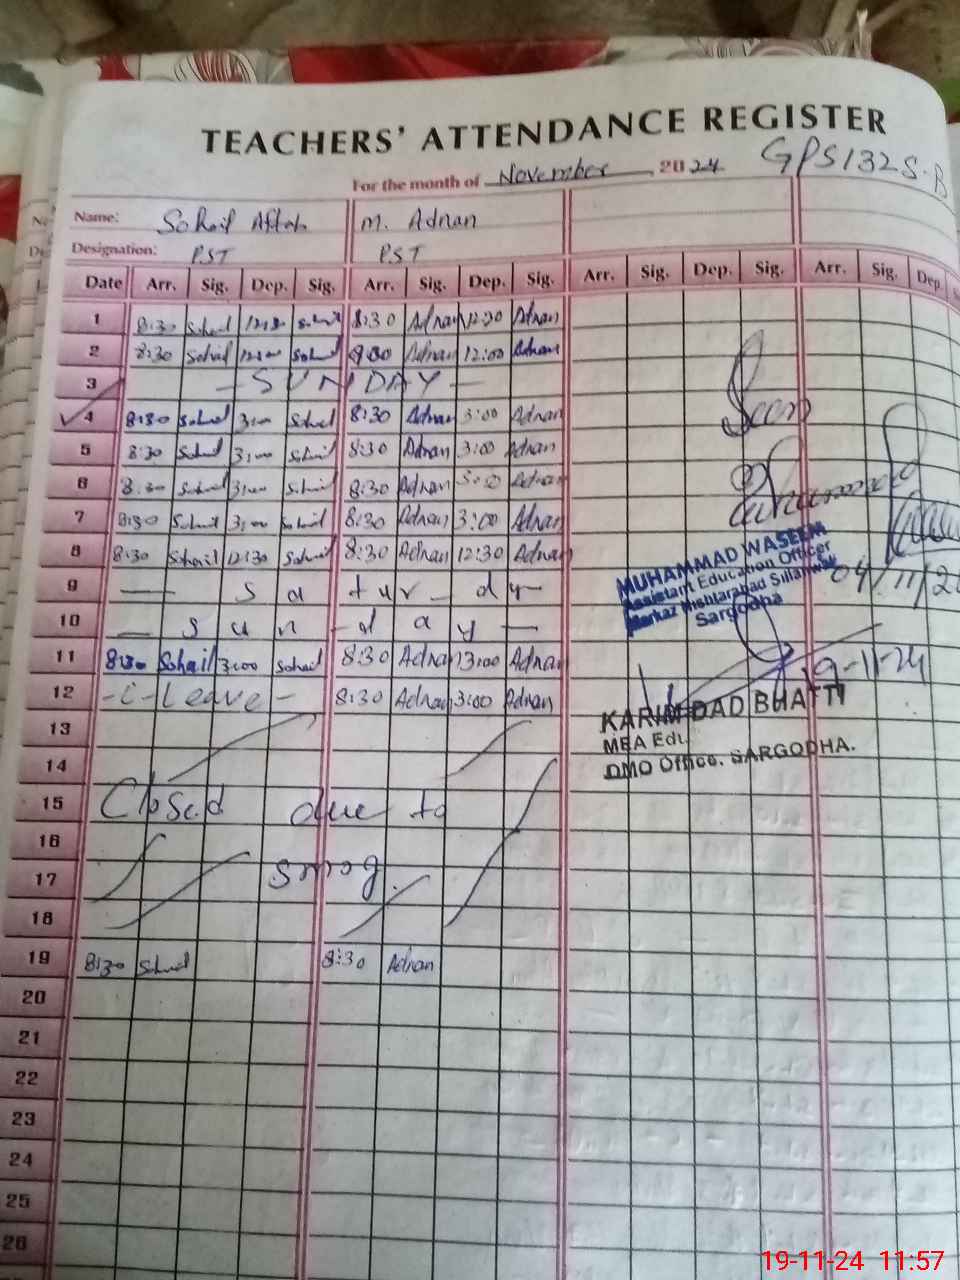 TEACHERS' ATTENDANCE REGISTER
For the month of November 2024 GPS 132 S.B
Name: Sohail Aftab M. Adnan
Designation: PST PST
Date Arr. Sig. Dep. Sig. Arr. Sig. Dep. Sig. Arr. Sig. Dep. Sig. Arr. Sig. Dep.
1 8:30 Sohail Sohail 8:30 Adnan 12:30 Adnan
2 8:30 Sohail 12:00 Sohail 8:30 Adnan 12:00 Adnan
3 - SUNDAY -
4 8:30 Sohail 3:00 Sohail 8:30 Adnan 3:00 Adnan
5 8:30 Sohail 3:00 Sohail 8:30 Adnan 3:00 Adnan
6 8:30 Sohail 3:00 Sohail 8:30 Adnan 3:00 Adnan
7 8:30 Sohail 3:00 Sohail 8:30 Adnan 3:00 Adnan
8 8:30 Sohail 12:30 Sohail 8:30 Adnan 12:30 Adnan
9 — Satur-dy —
10 — Sun-day —
11 8:30 Sohail 3:00 Sohail 8:30 Adnan 3:00 Adnan
12 -i-Leave- 8:30 Adnan 3:00 Adnan
13
14
15 Closed due to
16
17 smog.
18
19 8:30 Sohail 8:30 Adnan
20
21
22
23
24
25
26
Seen
MUHAMMAD WASEEM
Assistant Education Officer
Markaz Nishtarabad Sillanwali
Sargodha
04/11/20
19-11-24
KARIM DAD BHATTI
MEA Edu.
DMO Office. SARGODHA.
19-11-24 11:57